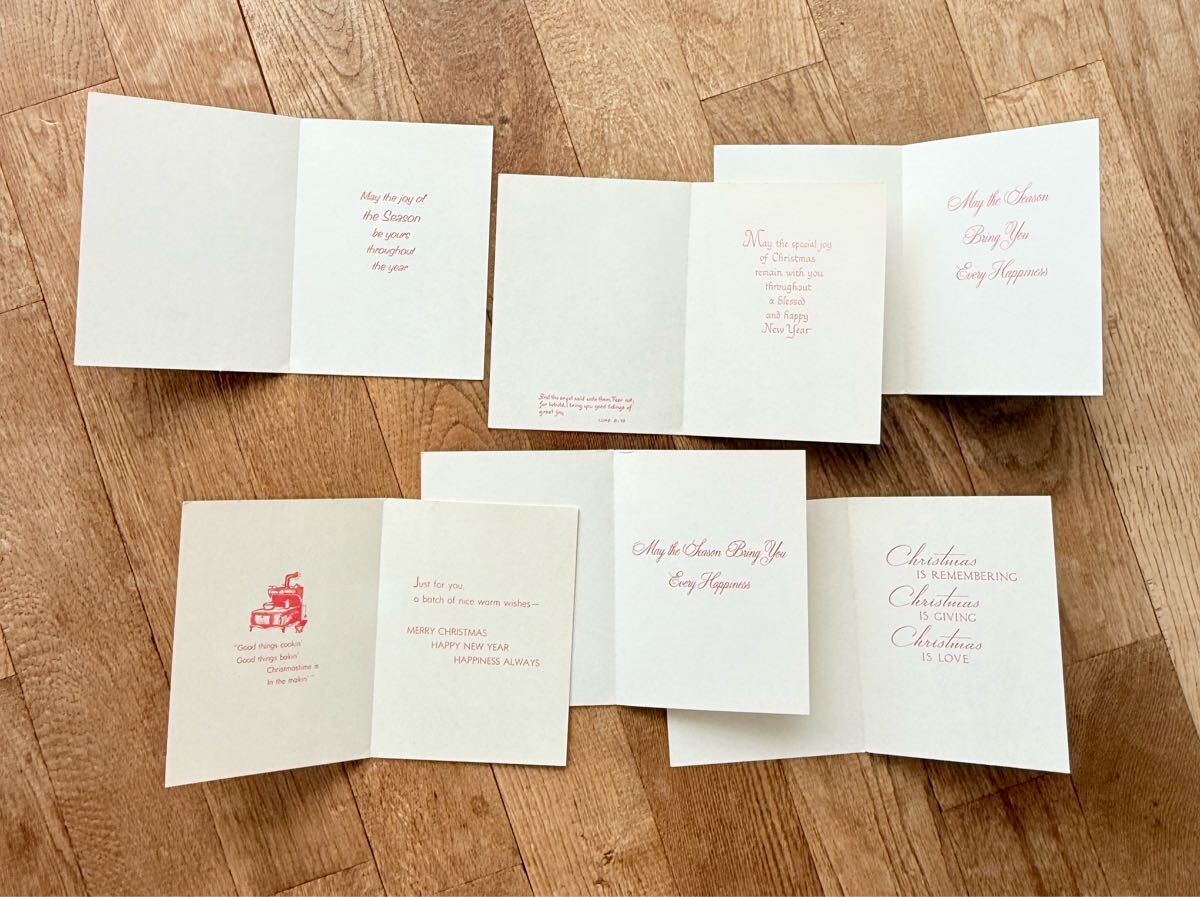 May the joy of
the Season
be yours
throughout
the year
And the angel said unto them, Fear not;
for behold, I bring you good tidings of
great joy,
LUKE 2:10
May the special joy
of Christmas
remain with you
throughout
a blessed
and happy
New Year
May the Season
Bring You
Every Happiness
"Good things cookin'
Good things bakin'
Christmastime is
In the makin'"
Just for you,
a batch of nice warm wishes—
MERRY CHRISTMAS
HAPPY NEW YEAR
HAPPINESS ALWAYS
May the Season Bring You
Every Happiness
Christmas
IS REMEMBERING
Christmas
IS GIVING
Christmas
IS LOVE